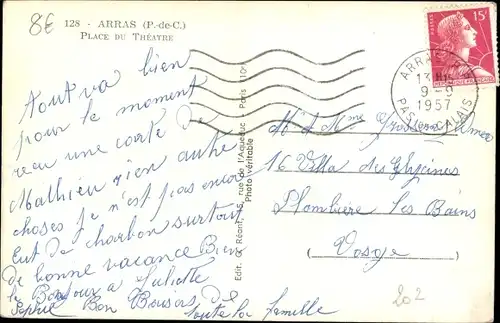 8€
128 - ARRAS (P.-de-C.)
PLACE DU THÉATRE
Tout va bien
pour le moment
reçu une carte
Mathieu rien autre
choses je n'est pas encore
Eut de charbon surtout
de bonne vacance Bien
le Bonjour a Juliette
Bon Baisers de
toute la famille
Edit. G. Réant, 45, rue de l'Aqueduc - Paris 10e
Photo véritable
POSTES
15F
ARRAS
13H15
9 - 1957
PAS-DE-CALAIS
Mr et Mme
16 Villa des Glycines
Plombière les Bains
(Vosge)
202